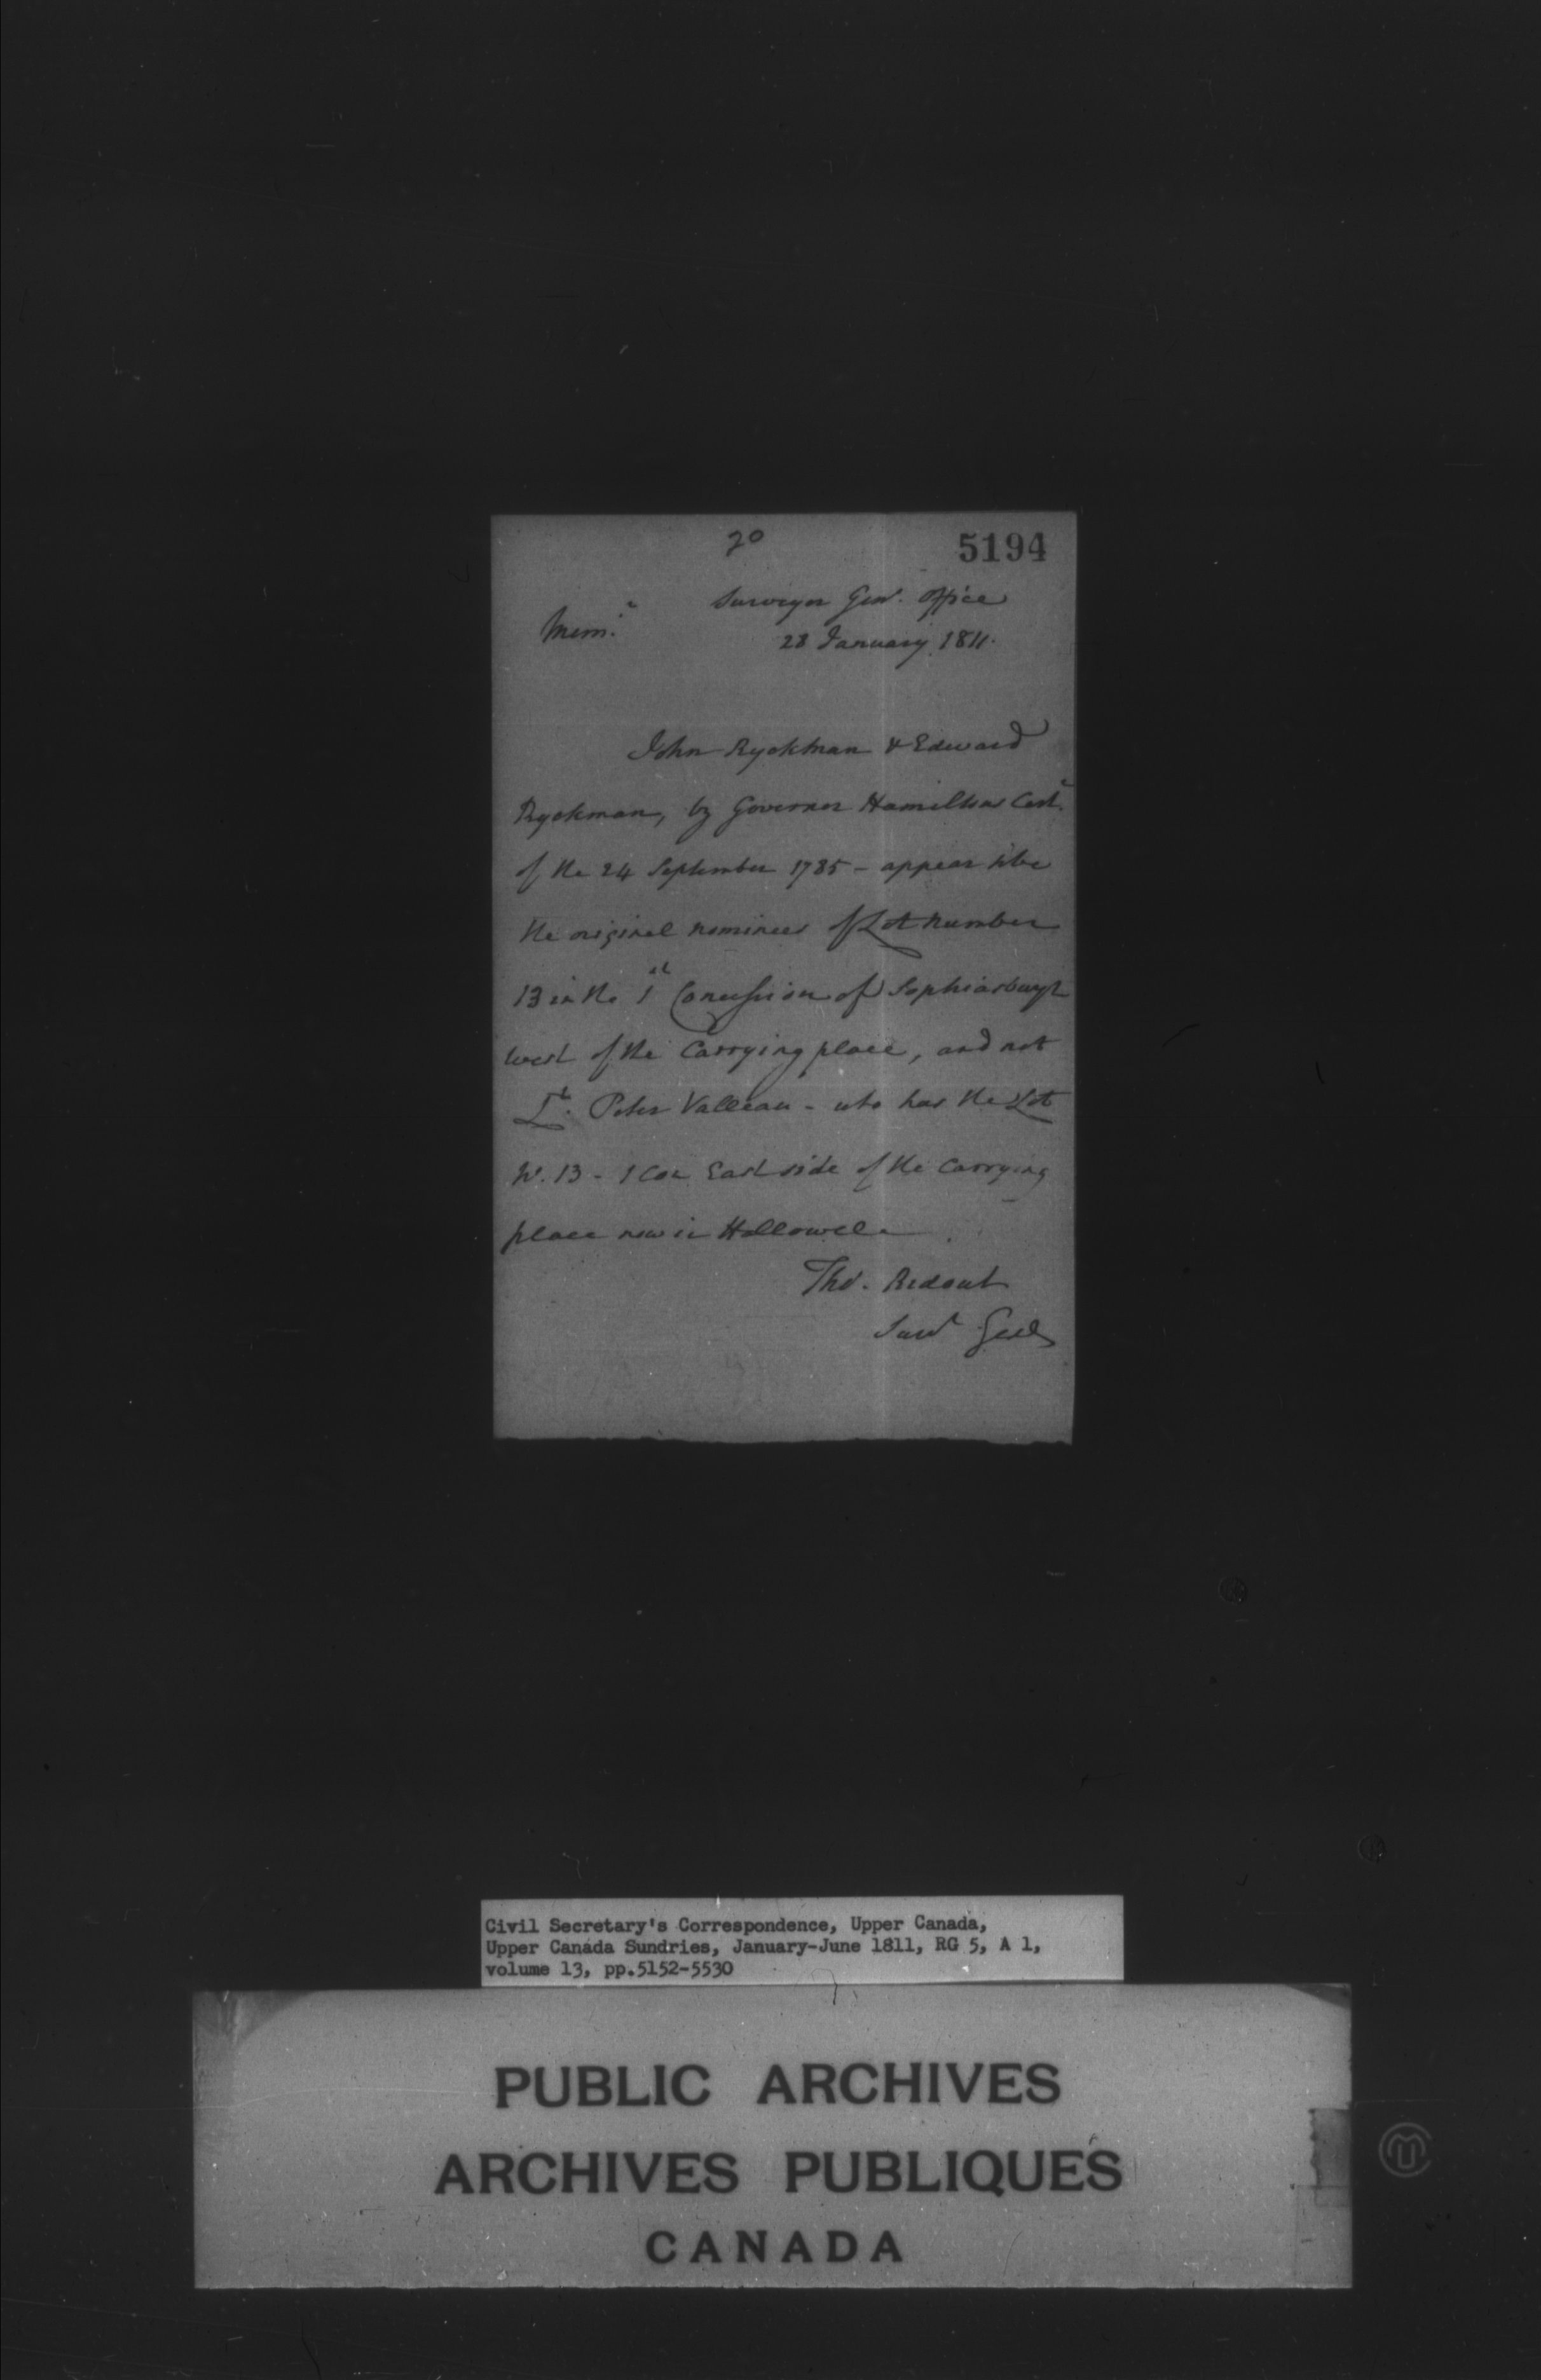 20
5194
Surveyor Genl. Office
Memo.
28 January 1811.
John Ryckman & Edward
Ryckman, by Governor Hamiltons Cert.
of the 24 September 1785 - appear to be
the original nominees of Lot number
13 in the 1st Concession of Sophiasburgh
west of the Carrying place, and not
Lt. Peter Valleau - who has the Lot
No. 13 - 1 Con East side of the Carrying
place now in Hallowell.
Thos. Ridout
Survr Genl
Civil Secretary's Correspondence, Upper Canada,
Upper Canada Sundries, January-June 1811, RG 5, A 1,
volume 13, pp.5152-5530
PUBLIC ARCHIVES
ARCHIVES PUBLIQUES
CANADA